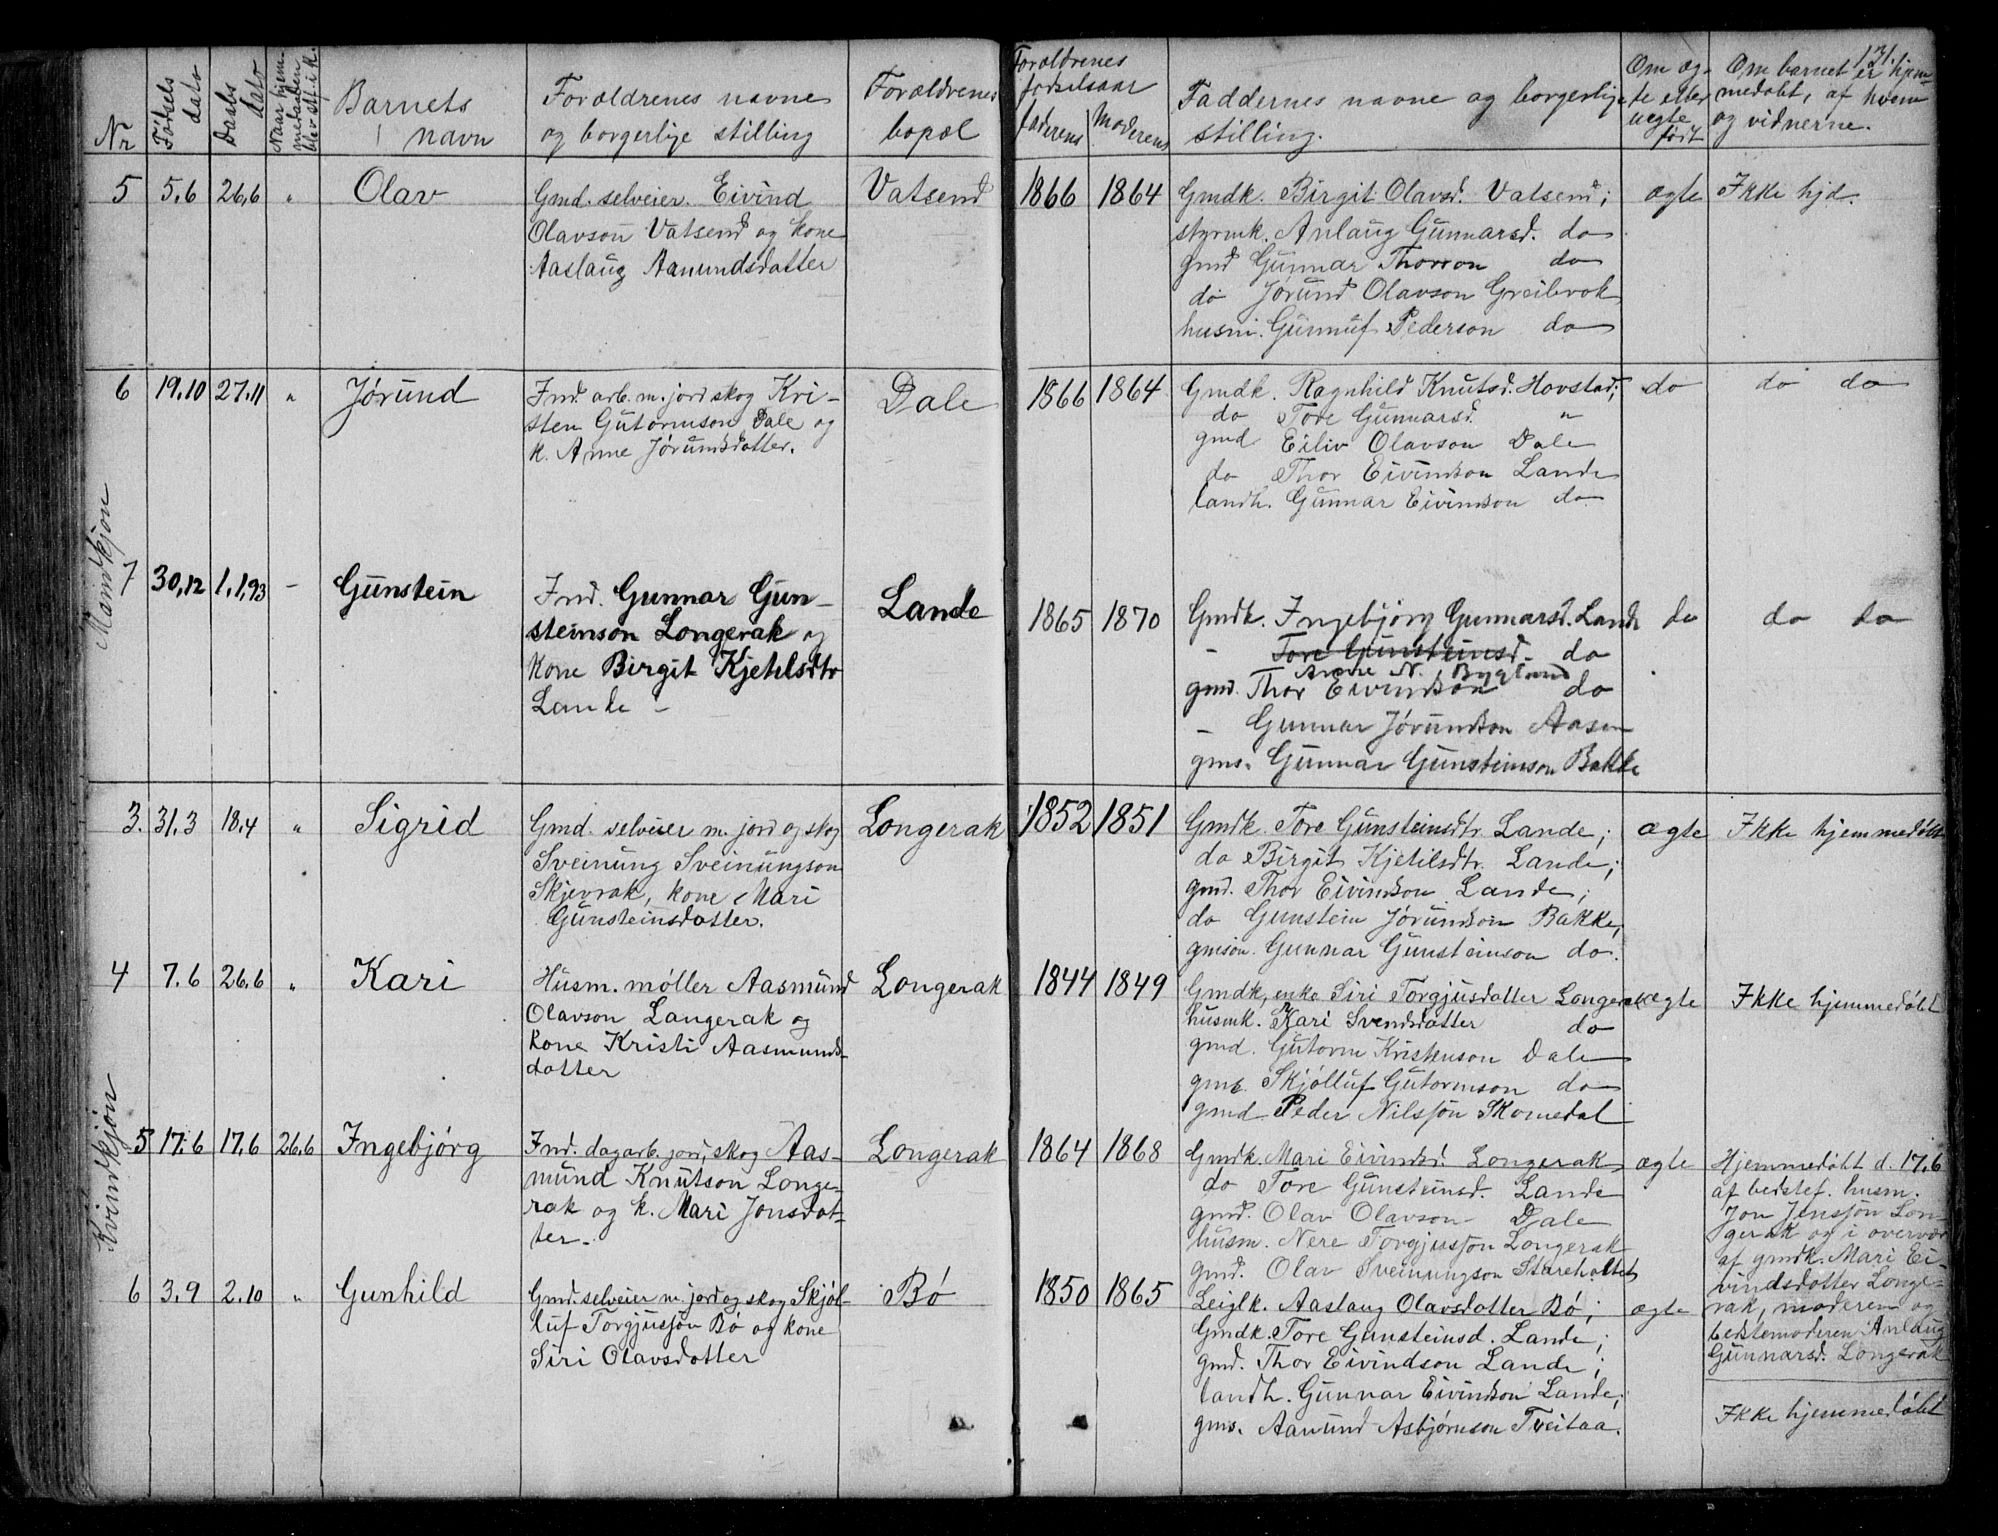 131.
Nr
Fødsels dato
Daabs dato
Naar hjemmedøbt
Barnets navn
Forældrenes navne og borgerlige stilling
Forældrenes bopæl
Forældrenes fødselsaar
faderens
Moderens
Faddernes navne og borgerlige stilling.
Om ægte eller uegte født
Om barnet er hjemmedøbt, af hvem og vidnerne.
Mandkjøn
5 5.6 26.6 " Olav
Gmd. selveier. Eivind
Olavson Vatsend og kone
Aaslaug Aanundsdatter
Vatsend
1866 1864
Gmdk. Birgit Olavsd. Vatsend;
styrmk. Anlaug Gunnarsd. do
gmd Gunnar Thorson do
do Jørund Olavson Greibrok
husm. Gunnuf Pederson do
ægte
Ikke hjd.
6 19.10 27.11 " Jørund
Ind. arb. m. jord skog Kri-
sten Gutormson Dale og
k. Anne Jørundsdatter.
Dale
1866 1864
Gmdk. Ragnhild Knutsd. Hovstad;
do Tore Gunnarsd. "
gmd Eiliv Olavson Dale
do Thor Eivindson Lande
landh. Gunnar Eivindson do
do
do do
7 30,12 1,1,93 - Gunstein
Ind. Gunnar Gun-
steinson Longerak og
kone Birgit Kjetilsdtr
Lande -
Lande
1865 1870
Gmdk. Ingebjørg Gunnarsd. Lande
- Tore Gunsteinsd. do
Anne N. Bygland
gmd. Thor Eivindson do
- Gunnar Jørundson Aasen
gms. Gunnar Gunsteinson Bakke
do
do do
Kvindkjøn
3. 31.3 18.4 " Sigrid
Gmd. selveier m. jord og skog
Sveinung Sveinungson
Skjevrak, kone Mari
Gunsteinsdatter.
Longerak
1852 1851
Gmdk. Tore Gunsteinsdtr. Lande;
do Birgit Kjetilsdtr. Lande;
gmd. Thor Eivindson Lande;
do Gunstein Jørundson Bakke,
gmsøn. Gunnar Gunsteinson do.
ægte
Ikke hjemmedøbt
4 7.6 26.6 " Kari
Husm. møller Aasmund
Olavson Langerak og
kone Kristi Aasmunds-
datter
Longerak
1844 1849
Gmdk, enke Siri Torgjusdatter Longerak
husmk. Kari Svendsdatter do
gmd. Gutorm Kristenson Dale
gms. Skjølluf Gutormson do
gmd Peder Nilssøn Skomedal
ægte
Ikke hjemmedøbt
5 17.6 17.6 26.6 Ingebjørg
Ind. dagarb. jord, skog Aas-
mund Knutson Longe-
rak og k. Mari Jonsdat-
ter.
Longerak
1864 1868
Gmdk. Mari Eivindsd. Longerak
do Tore Gunsteinsd. Lande
gmd. Olav Olavson Dale
husm. Nere Torgjussøn Longerak
gmd. Olav Sveinungson Stareholtet
ægte
Hjemmedøbt d. 17.6
af bedstef. husm.
Jon Jenssøn Lon-
gerak og i overvær
af gmdk. Mari Ei-
vindsdatter Longe-
rak, moderen og
bedstemoderen Anlaug
Gunnarsd. Longerak
6 3.9 2.10 " Gunhild
Gmd. selveier m. jord og skog Skjøl-
luf Torgjussøn Bø og kone
Siri Olavsdatter
Bø
1850 1865
Leiglk. Aaslaug Olavsdatter Bø;
Gmdk. Tore Gunsteinsd. Lande;
gmd. Thor Eivindson Lande;
landh. Gunnar Eivindson Lande;
gms. Aanund Asbjørnson Tveitaa.
ægte
Ikke hjemmedøbt